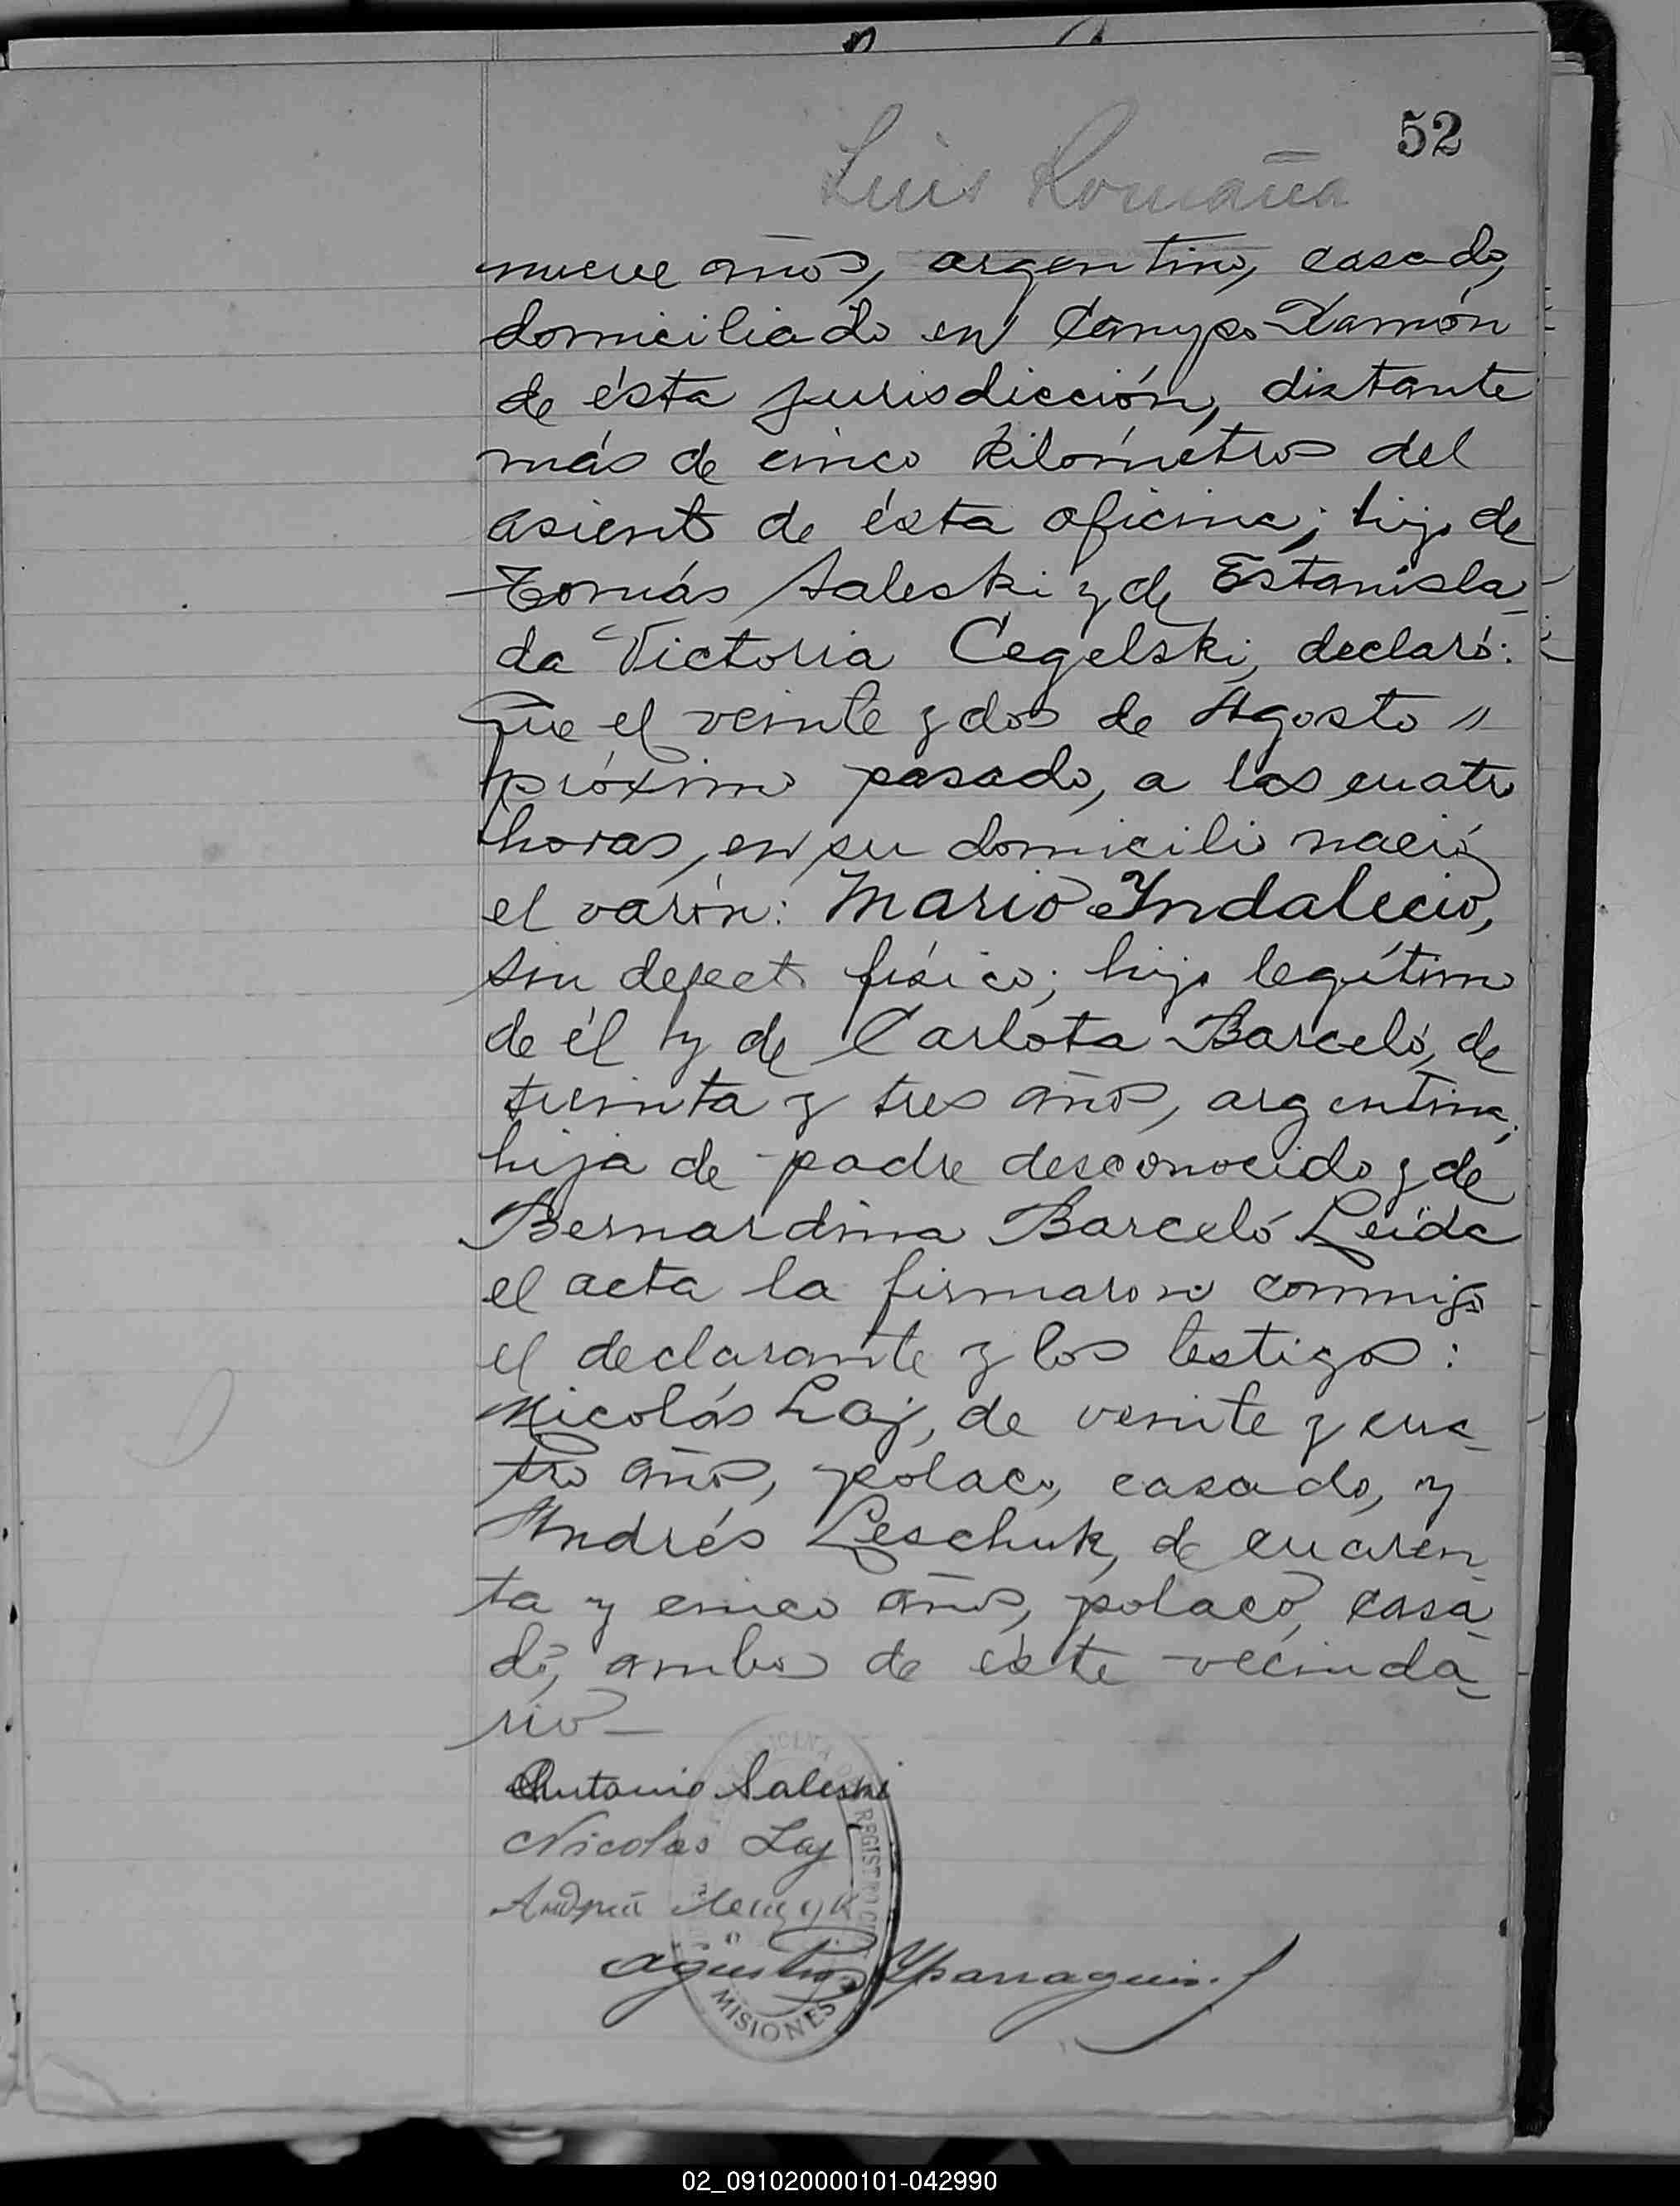 52
Luis Romaña
nueve años, argentino, casado,
domiciliado en Campo Ramón
de ésta jurisdicción, distante
más de cinco kilómetros del
asiento de ésta oficina; hijo de
Tomás Saleski y de Estanisla-
da Victoria Cegelski, declaró:
Que el veinte y dos de Agosto "
próximo pasado, a las cuatro
horas, en su domicilio nació
el varón: Mario Indalecio,
sin defecto físico; hijo legítimo
de él y de Carlota Barceló, de
treinta y tres años, argentina,
hija de padre desconocido y de
Bernardina Barceló Leída
el acta la firmaron conmigo
el declarante y los testigos:
Nicolás Laj, de veinte y cua-
tro años, polaco, casado, y
Andrés Leschuk, de cuaren-
ta y cinco años, polaco, casa-
do, ambos de éste vecinda-
rio—
Antonio Saleski
Nicolas Laj
REGISTRO CIVIL
Agustin Yparraguirre
MISIONES
02_091020000101-042990